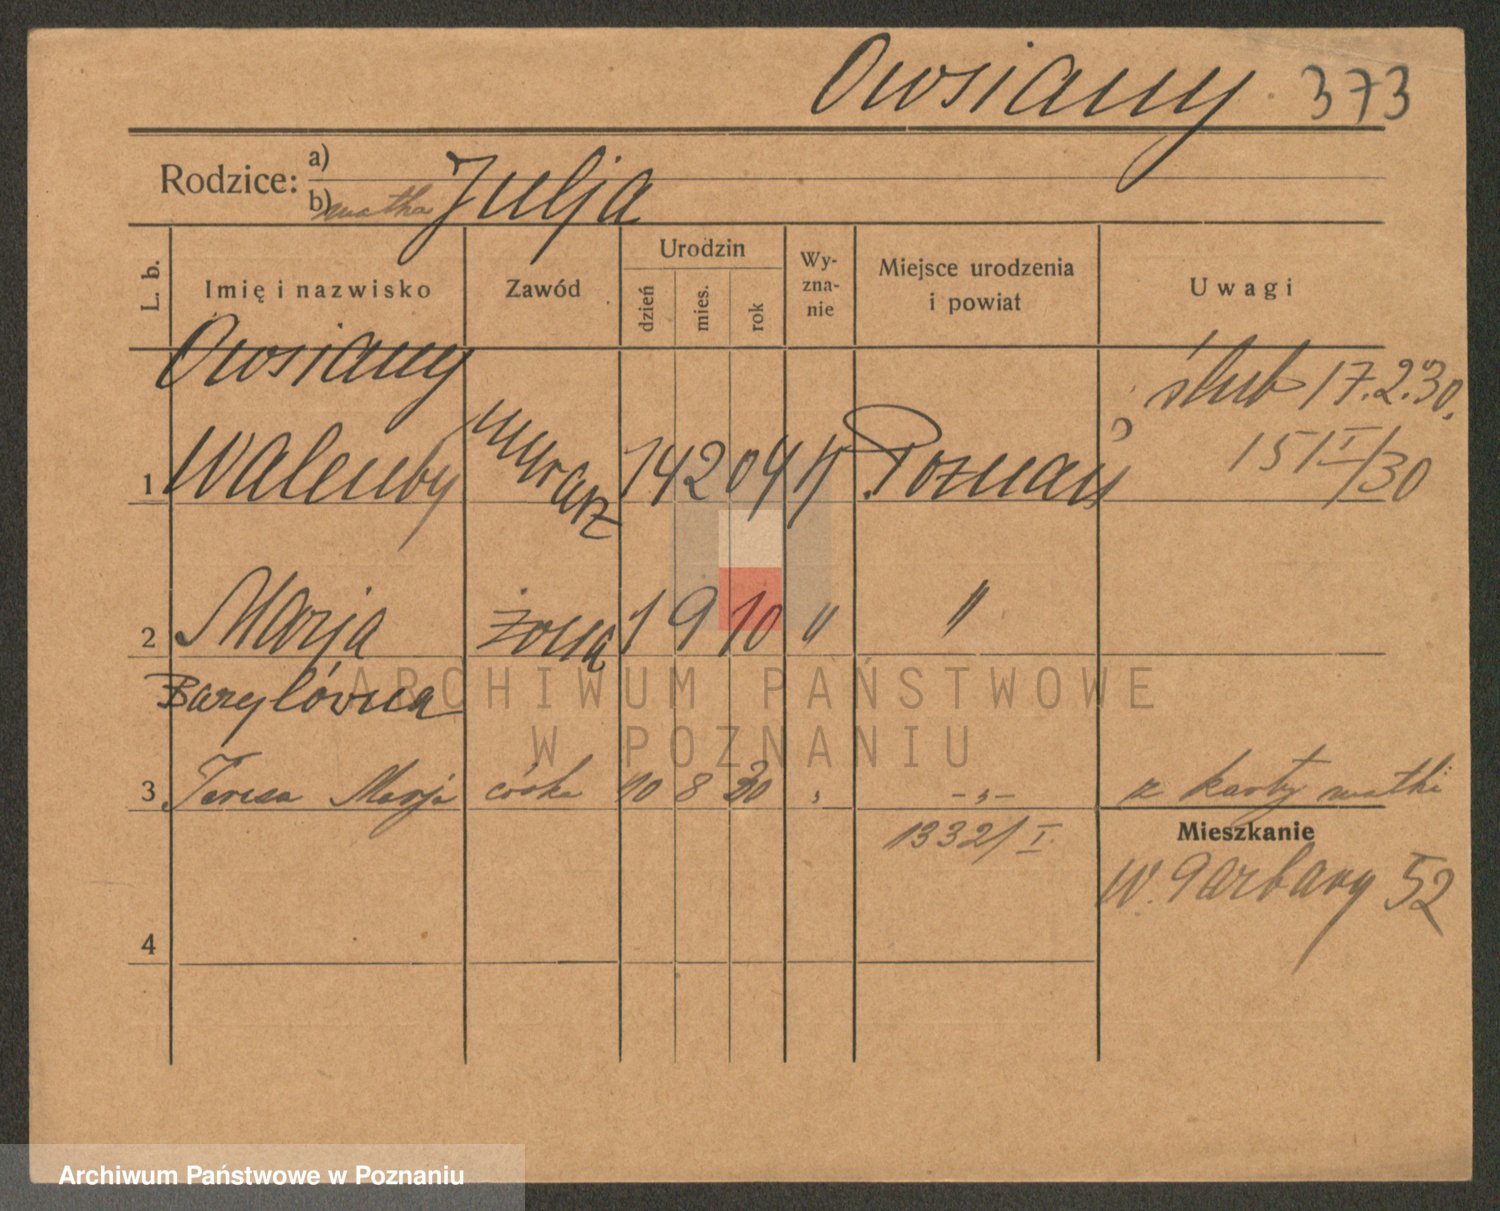 Owsiany 373
Rodzice: a)
b) matka Julja
L. b. Imię i nazwisko Zawód Urodzin dzień mies. rok Wy-zna-nie Miejsce urodzenia i powiat Uwagi
Owsiany ślub 17.2.30.
1 Walenty murarz 14 2 04 rk Poznań 151 I/30
2 Marja żona 1 9 10 " "
Barylówna
3 Teresa Marja córka 10 8 30 " -"- z karty matki
1332/I.
Mieszkanie
W. Garbary 52
4
ARCHIWUM PAŃSTWOWE
W POZNANIU
Archiwum Państwowe w Poznaniu